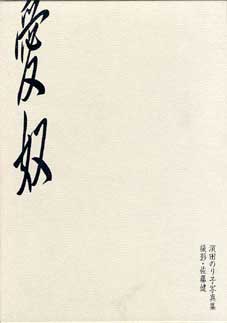 愛奴
濱田のり子写真集
撮影・佐藤健